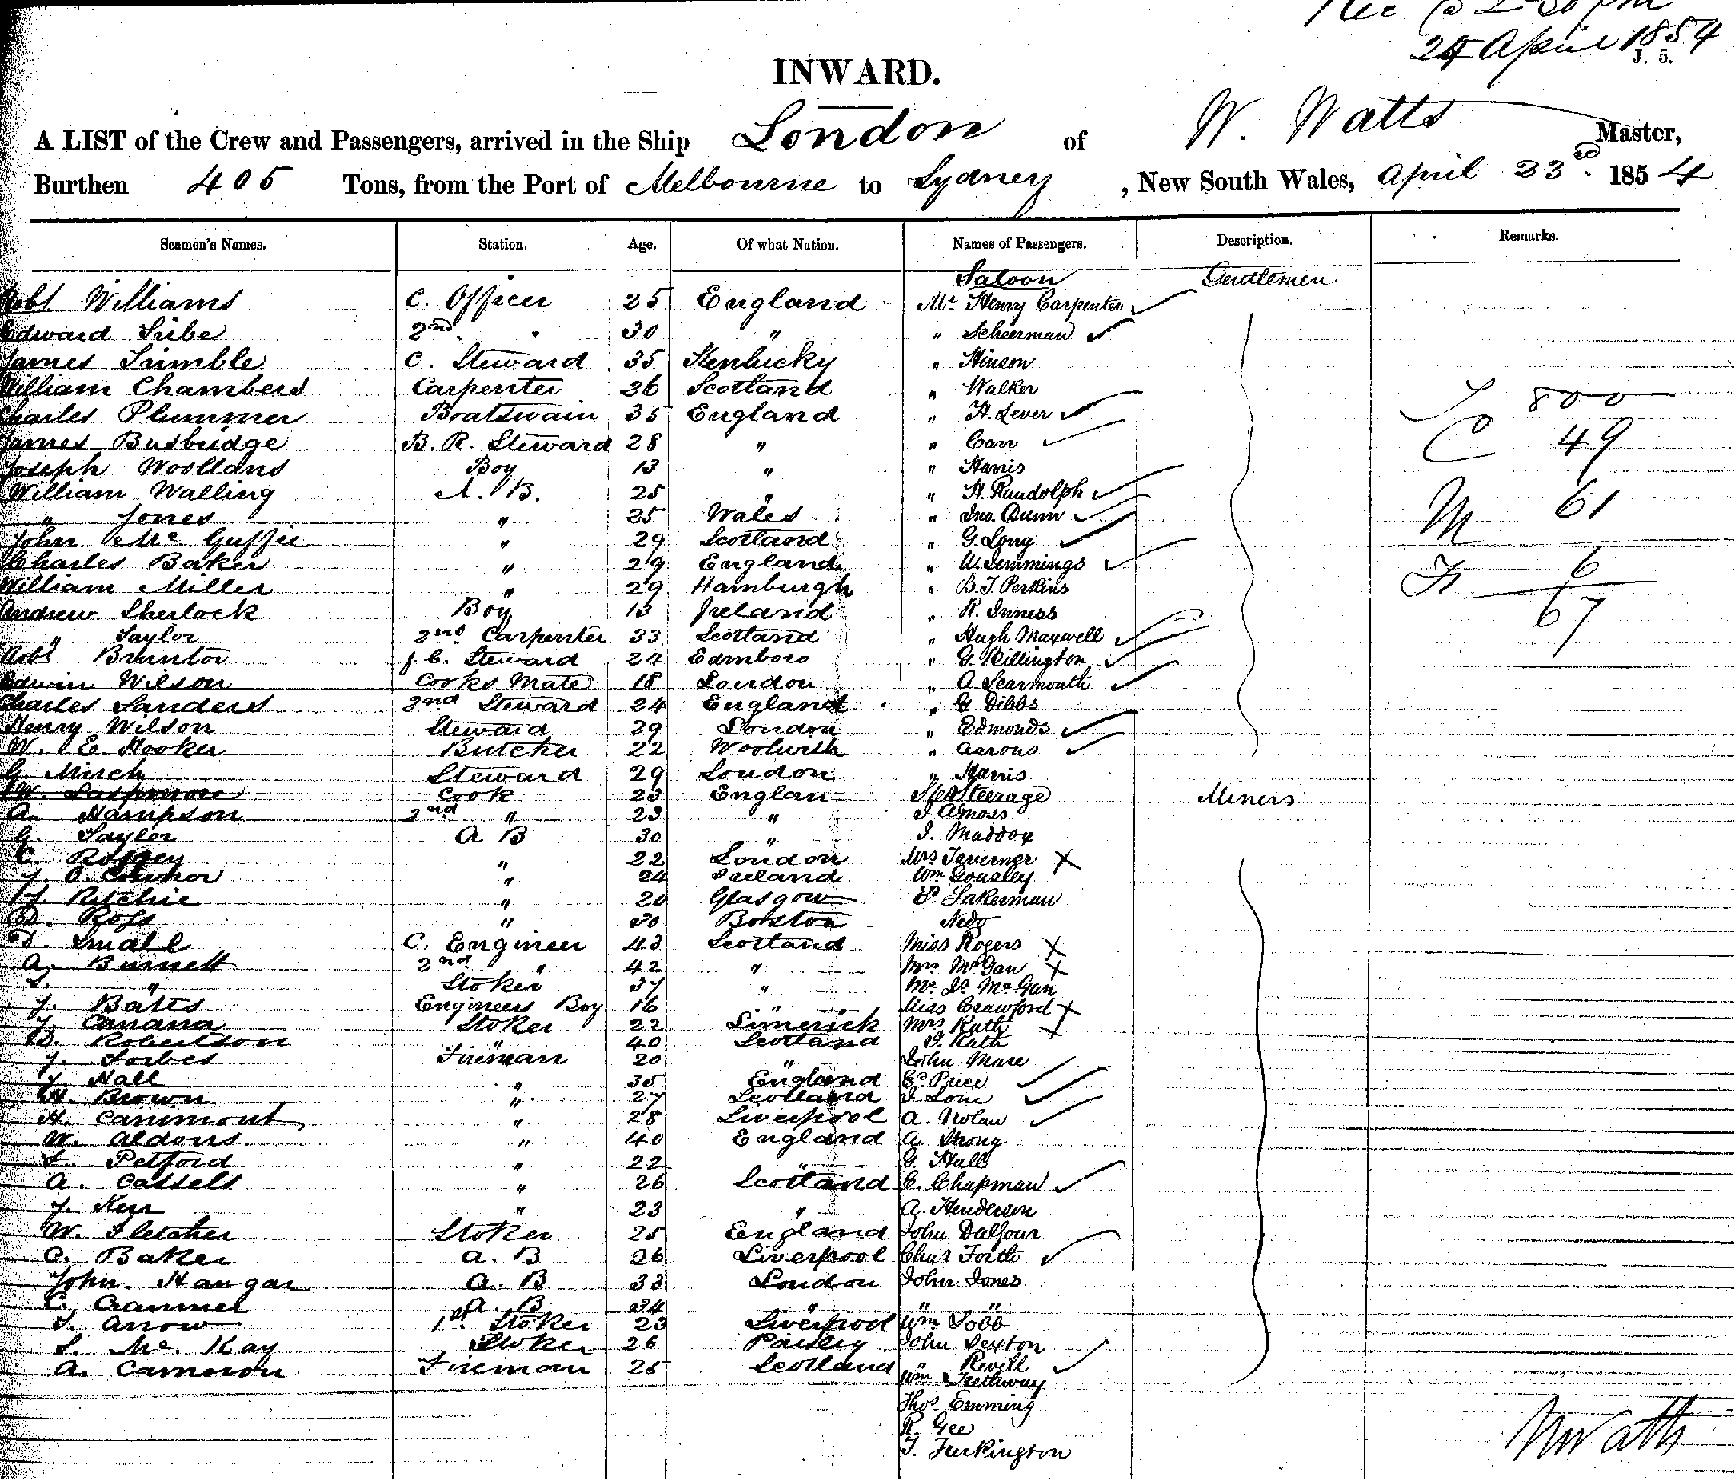 24 April 1854
J. 5.
INWARD.
A LIST of the Crew and Passengers, arrived in the Ship London of W. Watts Master,
Burthen 405 Tons, from the Port of Melbourne to Sydney, New South Wales, April 23rd. 1854
Seamen's Names. Station. Age. Of what Nation. Names of Passengers. Description. Remarks.
Saloon Gentlemen
Robt Williams C. Officer 25 England Mr Henry Carpenter
Edward Sube 2nd " 30 " " Scheerman
James Trimble C. Steward 35 Kentucky " Hinson
William Chambers Carpenter 36 Scotland " Walker
Charles Plummer Boatswain 35 England " H. Lever 800
James Busbridge B. R. Steward 28 " " Carr C 49
Joseph Woollans Boy 13 " " Harris
William Walling A. B. 25 " " H. Randolph
" Jones " 25 Wales " Jno. Dunn M 61
John Mc Guffie " 29 Scotland " G. Long
Charles Baker " 29 England " W. Jemmings
William Miller " 29 Hamburgh " B. J. Perkins 6
Andrew Sherlock Boy 13 Ireland " R. Inness 67
" Taylor 2nd Carpenter 33 Scotland " Hugh Maxwell
Robt Brunton f. C. Steward 24 Edinboro " G. Killington
Edwin Wilson Cooks Mate 18 London " A Learmonth
Charles Sanders 2nd Steward 24 England " G Dibbs
Henry Wilson Steward 29 London " Edmonds
W. E. Hooker Butcher 22 Woolwich " Aarons
G Minch Steward 29 London " Harris
Cook 23 Englan Steerage Miners
A. Hampson 2nd " 23 " J Amoss
G. Taylor A B 30 " J. Maddox
C. Roffey " 22 London Mrs Taverner
J. O Connor " 24 Ireland Wm Gousley
J. Ritchie " 20 Glasgow P. Sakerman
D. Ross " 30 Bolston
D. Small C. Engineer 43 Scotland Miss Rogers
A. Burnett 2nd " 42 " Mrs McGan
" Stoker 37 " Mr Js McGan
J. Batts Engineers Boy 16 " Miss Crawford
J. Canana Stoker 22 Limerick Mrs Kath
D. Robertson " 40 Scotland J. Kath
J. Forbes Fireman 20 " John Mare
J. Hall " 35 England Price
H. Brown " 27 Scotland
H. Cammont " 28 Liverpool A. Nolan
W. Aldous " 40 England A Strong
S. Petford " 22 " G. Hall
A. Cassels " 26 Scotland C. Chapman
J. Kerr " 23 " A. Henderson
W. Fletcher Stoker 25 England John Balfour
C. Baker A. B 26 Liverpool Chas Forth
John Haugar A. B 33 London John Jones
C. Cranmer A. B 24 " " "
J. Arrow 1st Stoker 23 Liverpool Wm Todd
S. Mc Kay Stoker 26 Paisley John Sexton
A. Cameron Fireman 25 Scotland " Revill
Wm Trethway
Thos Emming
R. Gee
J. Turkington
W Watts